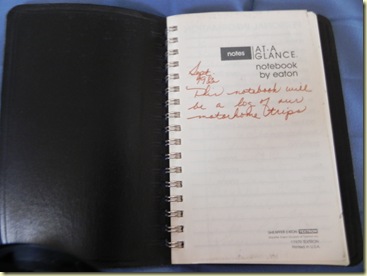 notes AT-A
GLANCE
notebook
by eaton
Sept
This notebook will
be a log of our
motorhome trips